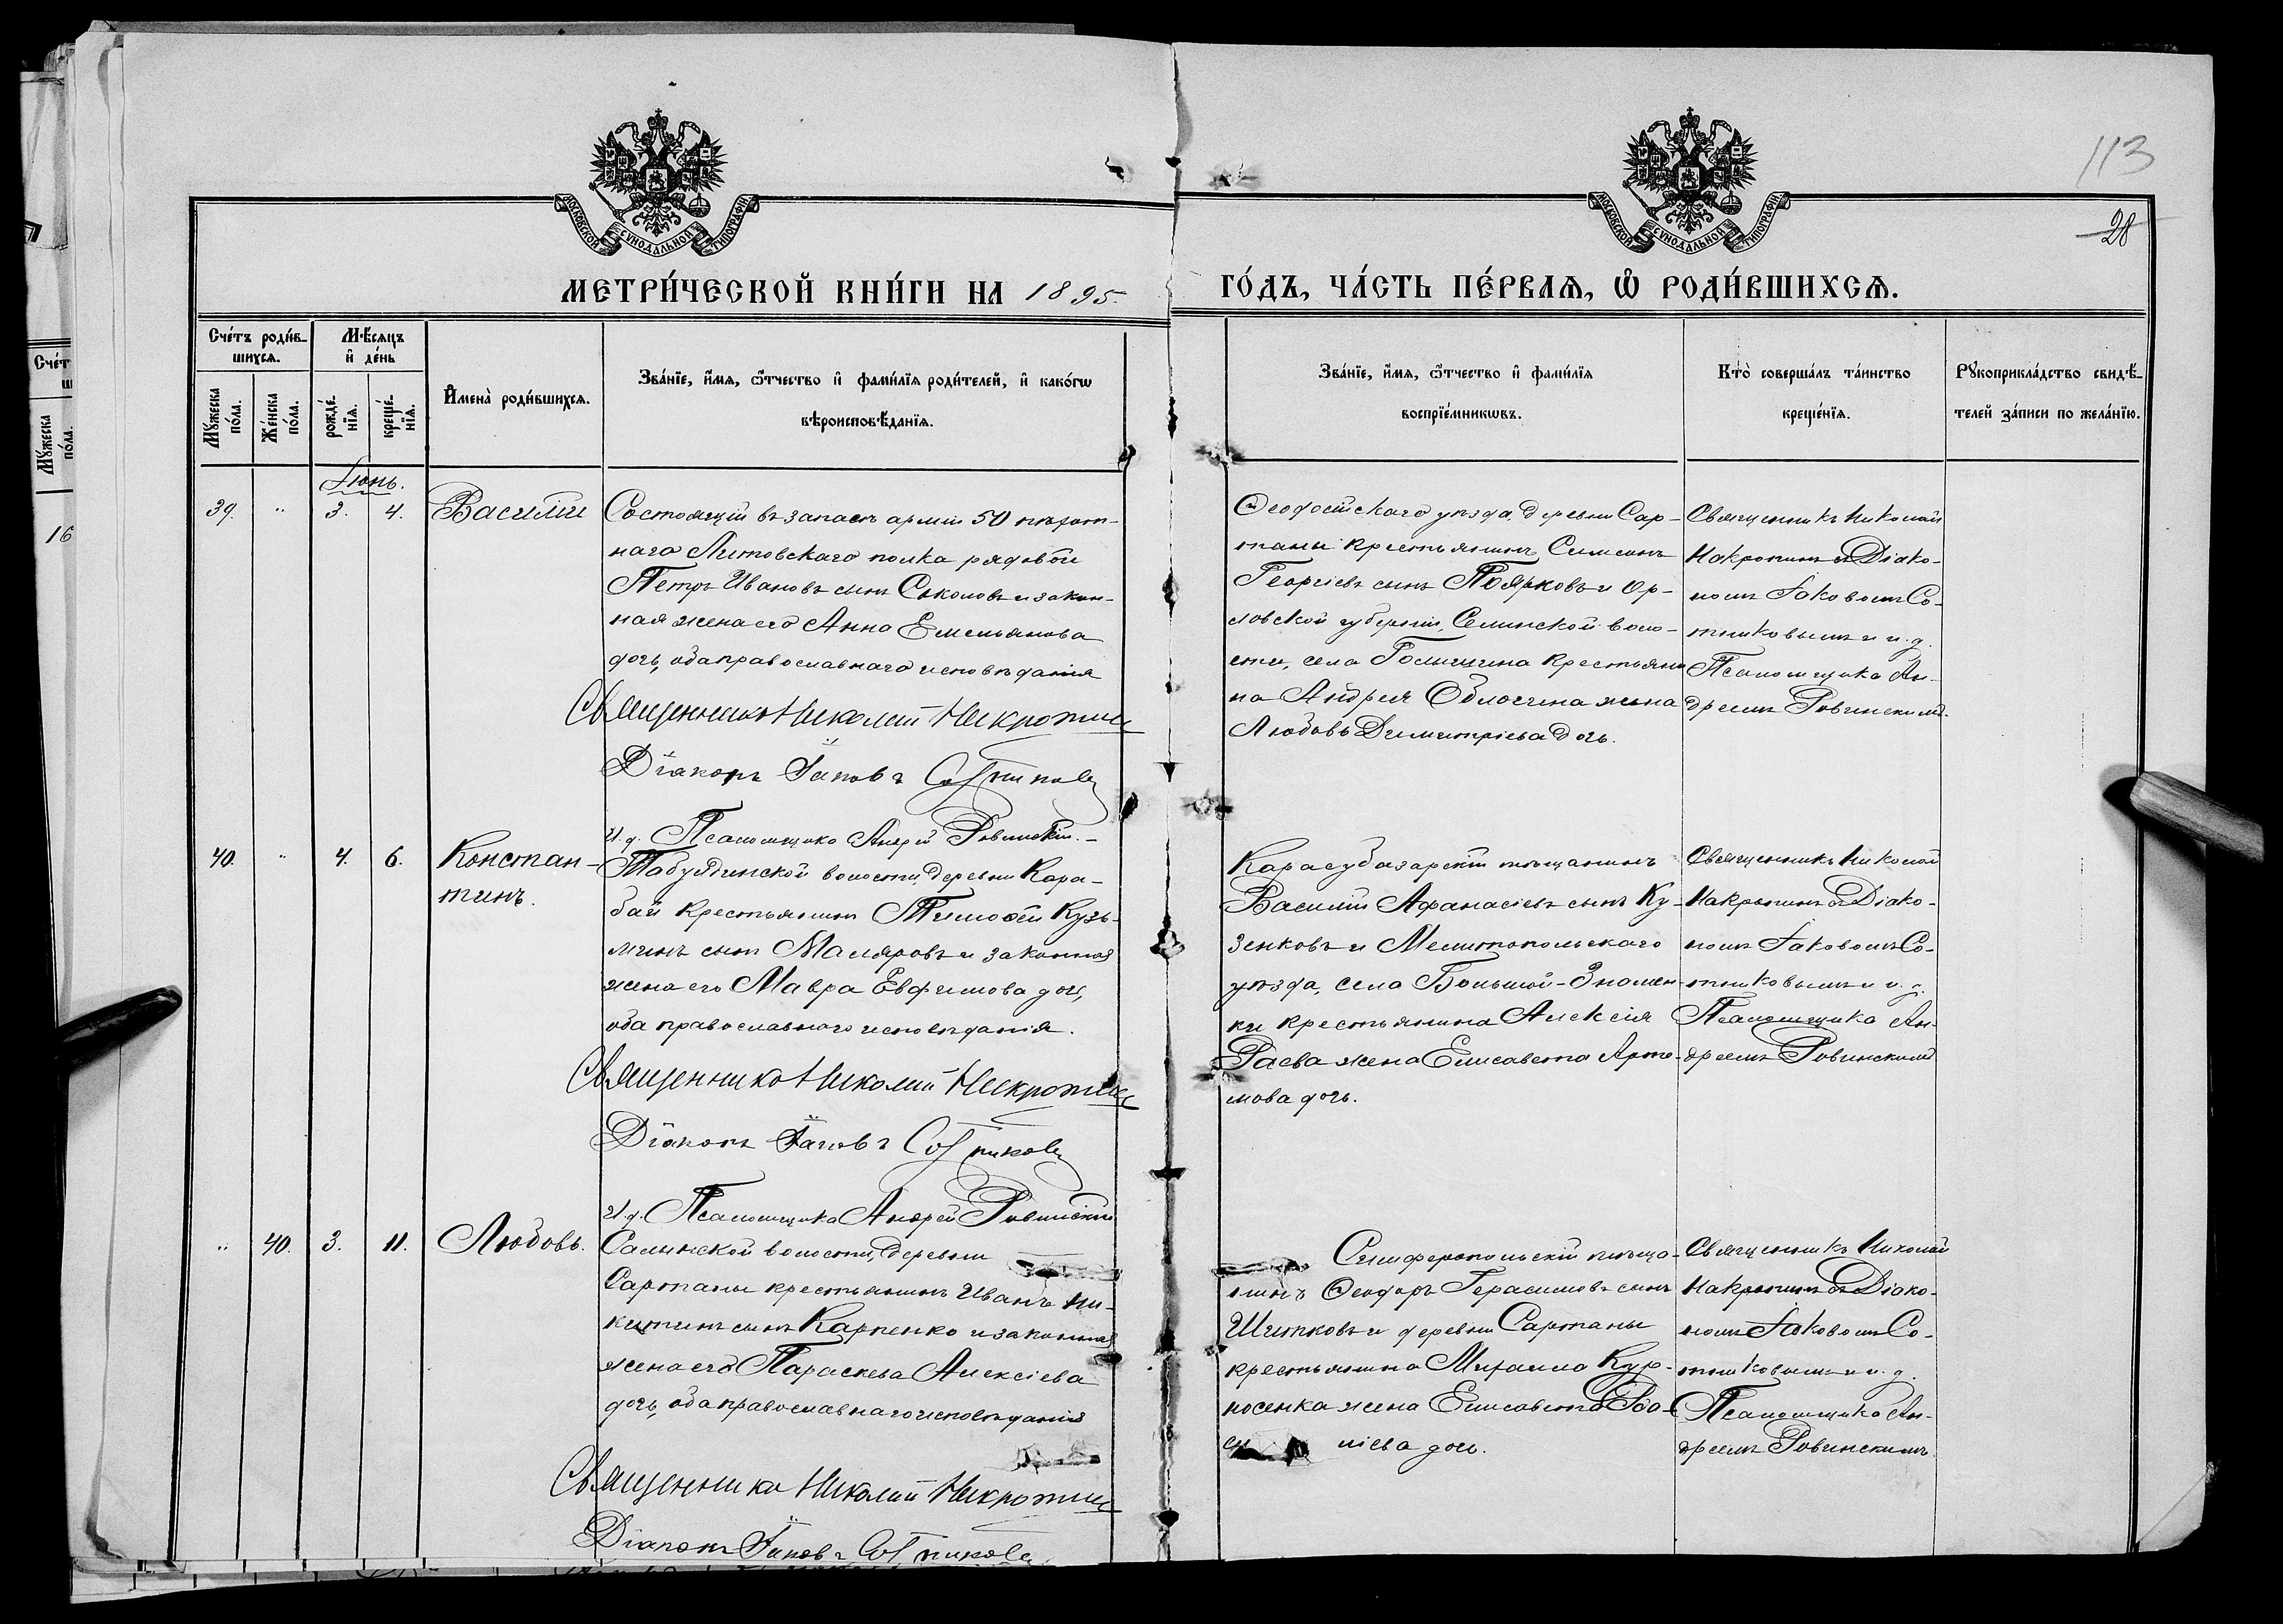 113
28
МОСКОВСКОЙ СУНОДАЛЬНОЙ ТИПОГРАФІИ
МОСКОВСКОЙ СУНОДАЛЬНОЙ ТИПОГРАФІИ
МЕТРИ́ЧЕСКОЙ КНИ́ГИ НА 1895 ГО́ДЪ, ЧА́СТЬ ПЕ́РВАѦ, Ѡ РОДИ́ВШИХСѦ.
Сче́тъ роди́в-
шихсѧ.
Мꙋжеска по́ла.
Же́нска по́ла.
Мѣ́сѧцъ и де́нь
рожде́-нїѧ.
креще́-нїѧ.
Имена̀ роди́вшихсѧ.
Зва́нїе, и́мѧ, ѻ́тчество и фами́лїѧ роди́телей, и како́гѡ
вѣроисповѣ́данїѧ.
Зва́нїе, и́мѧ, ѻ́тчество и фами́лїѧ
воспрїе́мникѡвъ.
Кто̀ соверша́лъ та́инство
креще́нїѧ.
Рꙋкоприкла́дство свидѣ́-
телей за́писи по жела́нїю.
Іюнь.
39. " 3. 4. Василій
Состоящій въ запасѣ арміи 50 пѣхот-
наго Литовскаго полка рядовой
Петръ Ивановъ сынъ Соколовъ и закон-
ная жена его Анна Емельянова
дочь, оба православнаго исповѣданія
Священникъ Николай Накропинъ
Діаконъ Іаковъ Сотниковъ
И. д. Псаломщика Андрей Ровинскій.
Ѳеодосійскаго уѣзда, деревни Сар-
таны крестьянинъ Симеонъ
Георгіевъ сынъ Поярковъ и Ор-
ловской губерніи, Селинской воло-
сти, села Голышина крестьяни
на Андрея жена
Любовь Димитріева дочь.
Священникъ Николай
Накропинъ съ Діако-
номъ Іаковомъ Со-
тниковымъ и и. д.
Псаломщика Ан-
дреемъ Ровинскимъ.
40. " 4. 6. Констан-
тинъ.
Табулдинской волости, деревни Кара-
бай крестьянинъ Тимоѳей Кузь-
минъ сынъ Маляровъ и законная
жена его Мавра Евфимова дочь,
оба православнаго исповѣданія.
Священникъ Николай Накропинъ
Діаконъ Іаковъ Сотниковъ
И. д. Псаломщика Андрей Ровинскій
Карасубазарскій мѣщанинъ
Василій Афанасіевъ сынъ Ку-
зенковъ и Мелитопольскаго
уѣзда, села Большой-Знамен
ки крестьянина Алексія
Раева жена Елисавета Арта-
мова дочь.
Священникъ Николай
Накропинъ съ Діако-
номъ Іаковомъ Со-
тниковымъ и и. д.
Псаломщика Ан-
дреемъ Ровинскимъ
" 40. 3. 11. Любовь.
Салынской волости, деревни
Сартаны крестьянинъ Иванъ Ни-
китинъ сынъ Карпенко и законная
жена его Параскева Алексіева
дочь, оба православнаго исповѣданія
Священникъ Николай Накропинъ
Діаконъ Іаковъ Сотниковъ
Симферопольскій мѣща-
нинъ Ѳеодоръ Герасимовъ сынъ
Шитковъ и деревни Сартаны
крестьянина Михаила Кур-
носенка жена Елисавета Ва-
си ліева дочь.
Священникъ Николай
Накропинъ съ Діако-
номъ Іаковомъ Со-
тниковымъ и и. д.
Псаломщика Ан-
дреемъ Ровинскимъ.
Сче́т
Мꙋжеска по́ла.
16